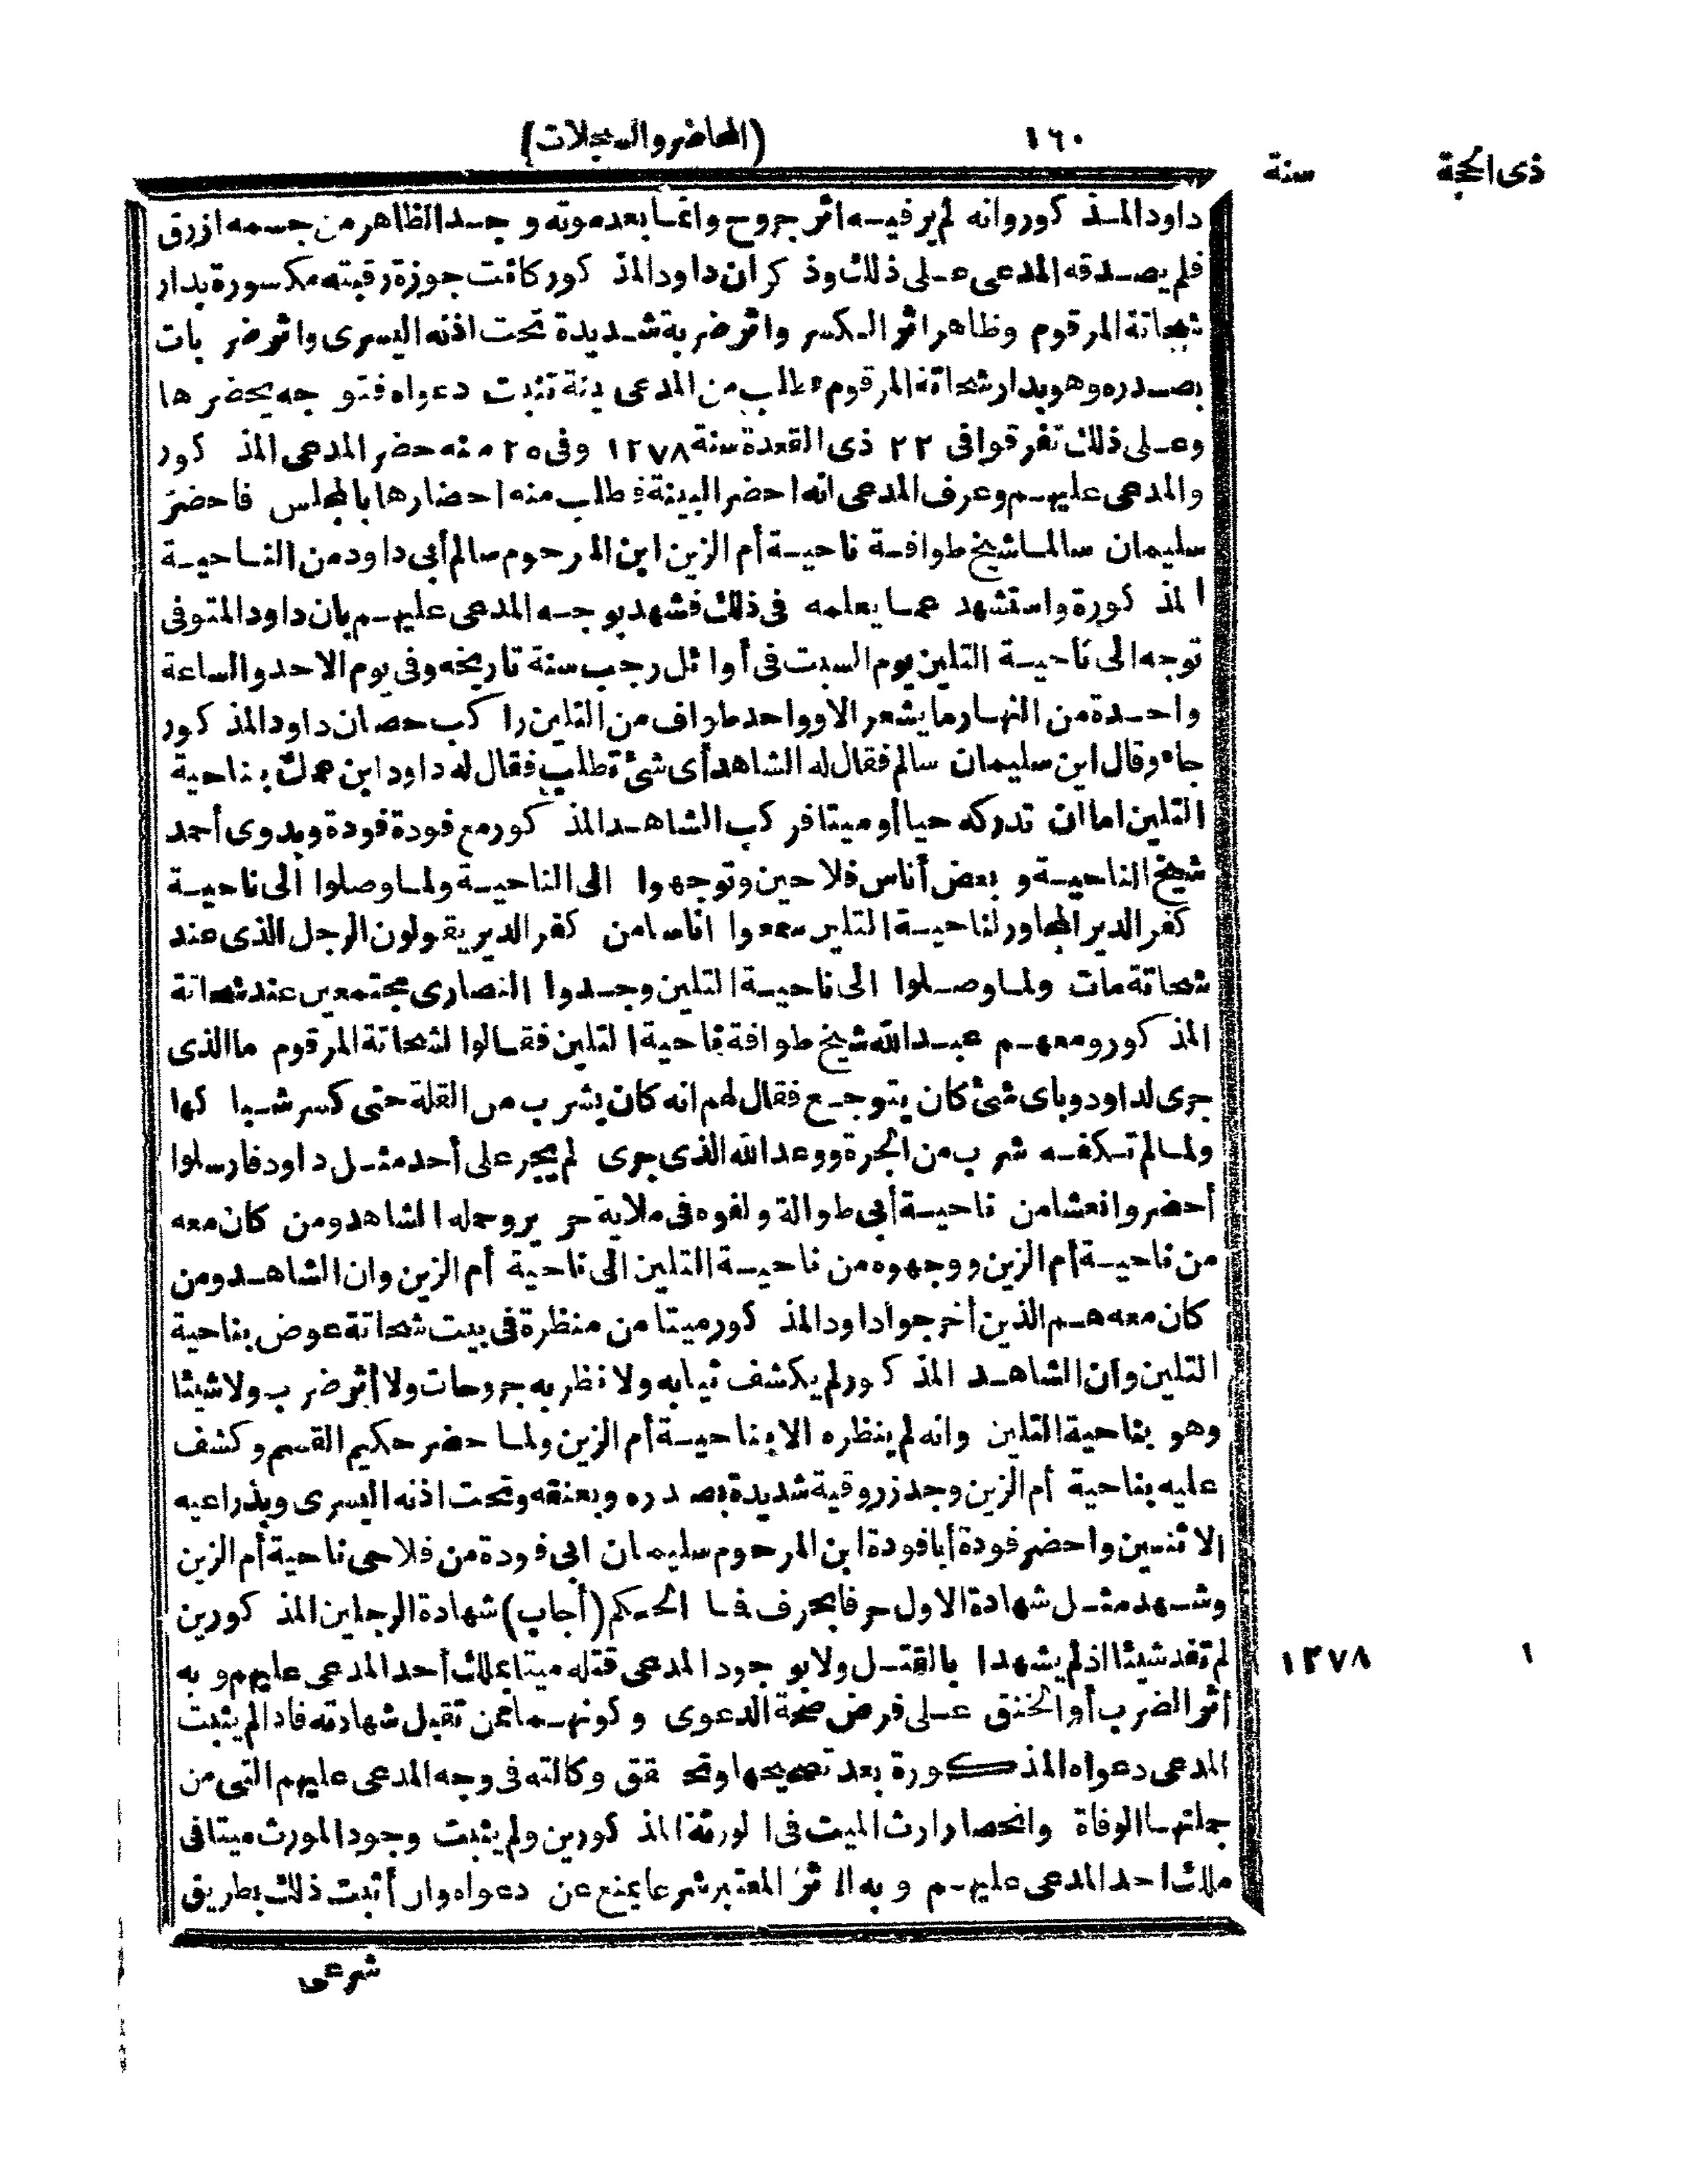 ذى الحجة سنة ١٦٠ (المحاضر والسجلات)
داود المذكور وانه لم ير فيه اثر جروح وانما بعد موته وجد الظاهر من جسمه ازرق
فلم يصدقه المدعى على ذلك وذكر ان داود المذكور كانت جوزة رقبته مكسورة بدار
شحاتة المرقوم وظاهر اثر الكسر واثر ضربة شديدة تحت اذنه اليسرى واثر ضربات
بصدره وهو بدار شحاتة المرقوم فطلب من المدعى بينة تثبت دعواه فتوجه يحضرها
وعلى ذلك تفرقوا فى ٢٢ ذى القعدة سنة ١٢٧٨ وفى ٢٥ منه حضر المدعى المذكور
والمدعى عليهم وعرف المدعى انه احضر البينة فطلب منه احضارها بالمجلس فاحضر
سليمان سالما شيخ طوافة ناحية أم الزين ابن المرحوم سالم أبى داود من الناحية
المذكورة واستشهد عما يعلمه فى ذلك فشهد بوجه المدعى عليهم بان داود المتوفى
توجه الى ناحية التلين يوم السبت فى أوائل رجب سنة تاريخه وفى يوم الاحد والساعة
واحدة من النهار ما يشعر الا وواحد طواف من التلين راكب حصان داود المذكور
جاء وقال اين سليمان سالم فقال له الشاهد أى شئ تطلب فقال له داود ابن عمك بناحية
التلين اما ان تدركه حيا أو ميتا فركب الشاهد المذكور مع فودة فودة وبدوى أحمد
شيخ الناحية وبعض أناس فلاحين وتوجهوا الى الناحية ولما وصلوا الى ناحية
كفر الدير المجاور لناحية التلين سمعوا اناسا من كفر الدير يقولون الرجل الذى عند
شحاتة مات ولما وصلوا الى ناحية التلين وجدوا النصارى مجتمعين عند شحاتة
المذكور ومعهم عبد الله شيخ طوافة ناحية التلين فقالوا لشحاتة المرقوم ما الذى
جرى لداود وباى شئ كان يتوجع فقال لهم انه كان يشرب من القلة حتى كسر شباكها
ولما لم تكفه شرب من الجرة ووعد الله الذى جرى لم يجر على أحد مثل داود فارسلوا
أحضروا نعشا من ناحية أبى طوالة ولفوه فى ملاية حرير وحمله الشاهد ومن كان معه
من ناحية أم الزين ووجهوه من ناحية التلين الى ناحية أم الزين وان الشاهد ومن
كان معه هم الذين أخرجوا داود المذكور ميتا من منظرة فى بيت شحاتة عوض بناحية
التلين وان الشاهد المذكور لم يكشف ثيابه ولا نظر به جروحات ولا أثر ضرب ولا شيئا
وهو بناحية التلين وانه لم ينظره الا بناحية أم الزين ولما حضر حكيم القسم وكشف
عليه بناحية أم الزين وجد زروقية شديدة بصدره وبعنقه وتحت اذنه اليسرى وبذراعيه
الاثنين واحضر فودة أبا فودة ابن المرحوم سليمان ابى فودة من فلاحى ناحية أم الزين
وشهد مثل شهادة الاول حرفا بحرف فما الحكم (أجاب) شهادة الرجلين المذكورين
لم تفد شيئا اذ لم يشهدا بالقتل ولا بوجود المدعى قتله ميتا بملك أحد المدعى عليهم وبه ١٢٧٨ ١
أثر الضرب أو الخنق على فرض صحة الدعوى وكونهما ممن تقبل شهادته فاذا لم يثبت
المدعى دعواه المذكورة بعد تصحيحها وتحقق وكالته فى وجه المدعى عليهم التى من
جملتها الوفاة وانحصار ارث الميت فى الورثة المذكورين ولم يثبت وجود المورث ميتا فى
ملك احد المدعى عليهم وبه الاثر المعتبر شرعا يمنع عن دعواه وان أثبت ذلك بطريق
شرعى